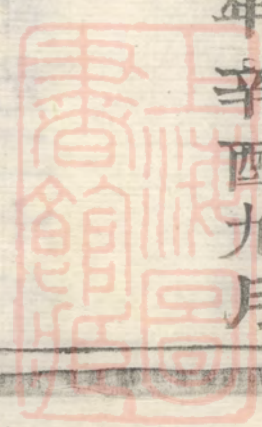 年辛酉九月
上海圖
書館藏